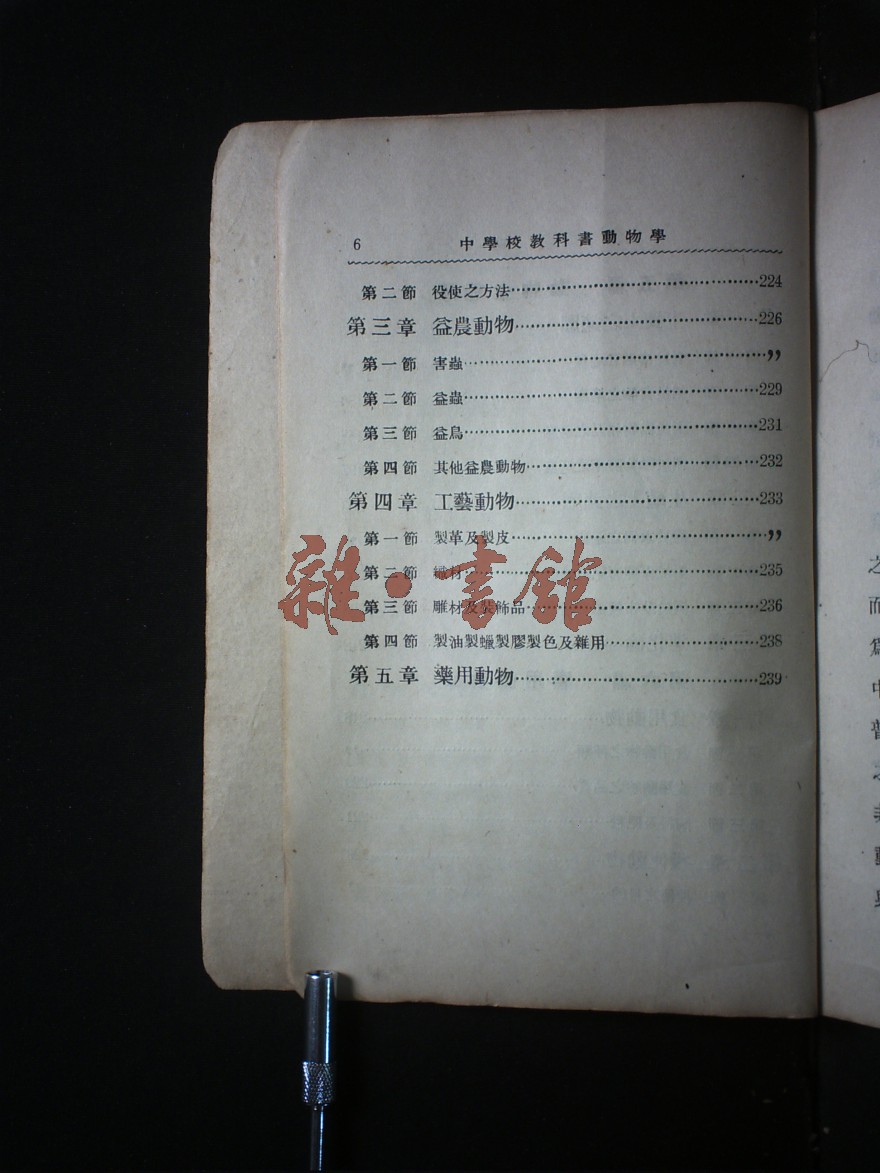 6 中學校教科書動物學
第二節 役使之方法……224
第三章 益農動物……226
第一節 害蟲……”
第二節 益蟲……229
第三節 益鳥……231
第四節 其他益農動物……232
第四章 工藝動物……233
第一節 製革及製皮……”
第二節 織材……235
第三節 雕材及裝飾品……236
第四節 製油製蠟製膠製色及雜用……238
第五章 藥用動物……239
雜·書館
之
而
爲
中